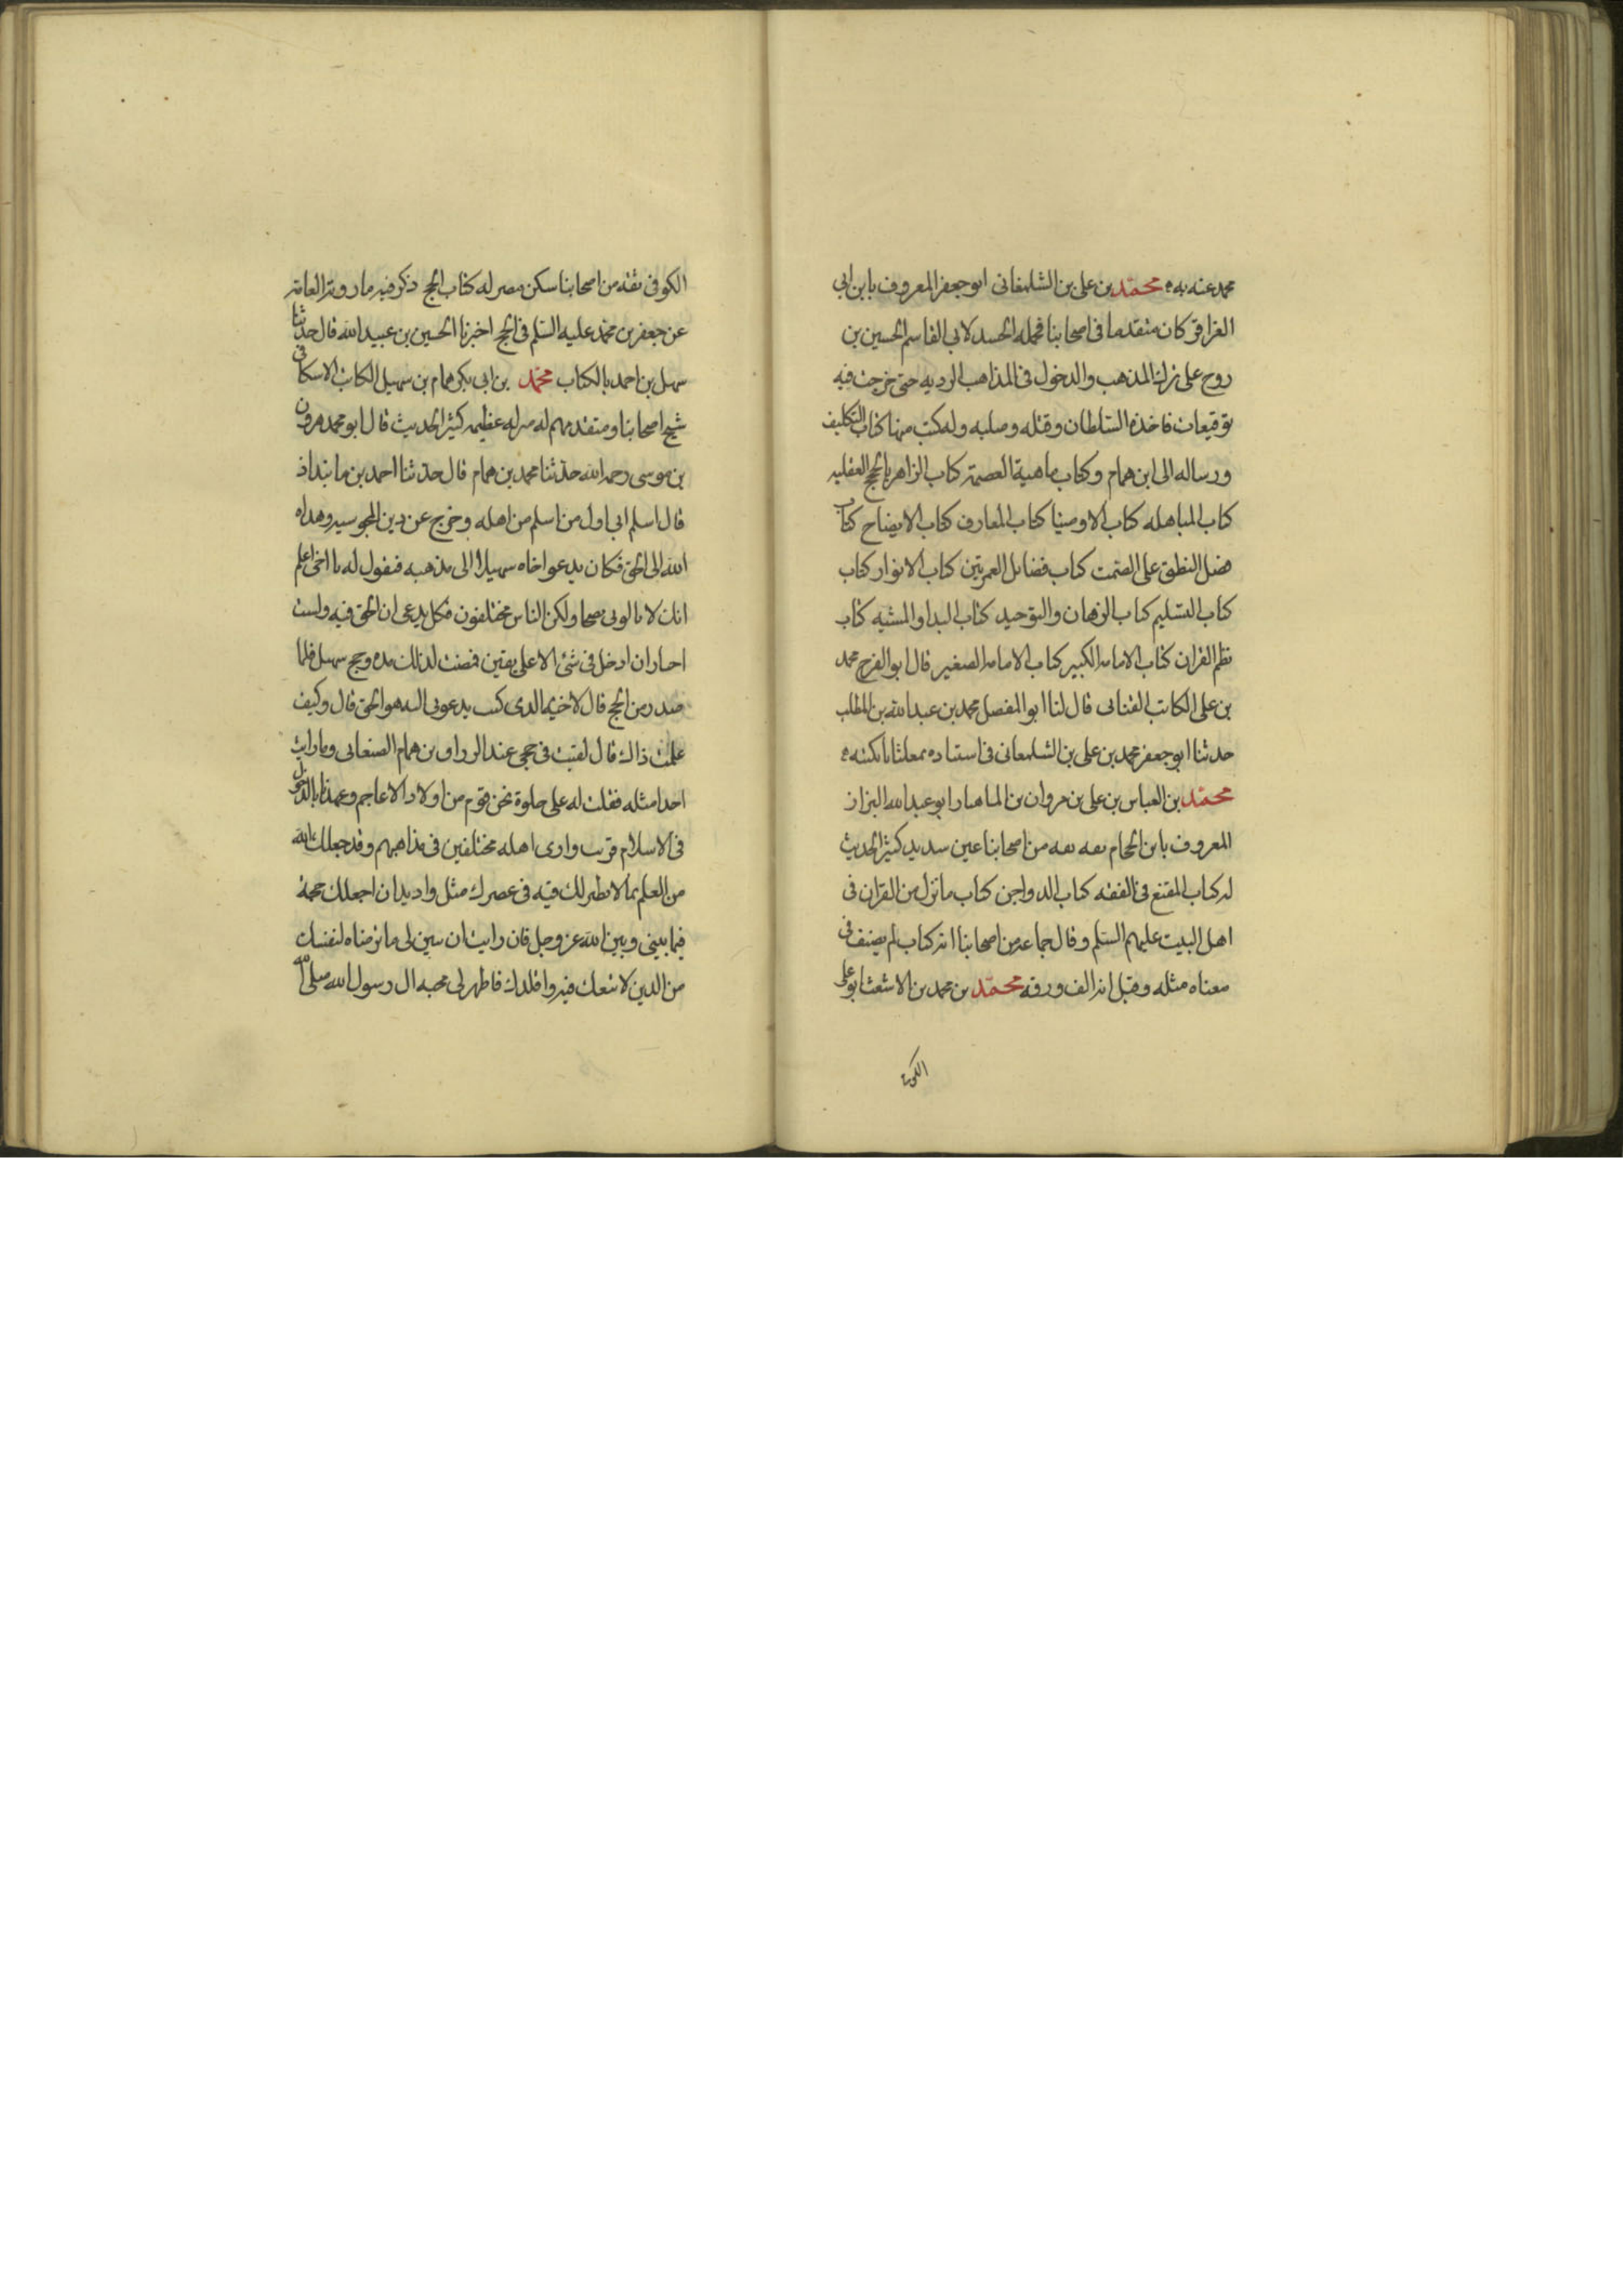 محمد عنه به ه محمّد بن على بن الشلمغانى ابو جعفر المعروف بابن ابى
العزاقر كان متقدما فى اصحابنا فحمله الحسد لابى القاسم الحسين بن
روح على ترك المذهب والدخول فى المذاهب الرديه حتى خرجت فيه
توقيعات فاخذه السّلطان وقتله وصلبه وله كتب منها كتاب التكليف
ورساله الى ابن همام وكتاب ماهية العصمة كتاب الزاهر بالحجج العقليه
كتاب المباهله كتاب الاوصيا كتاب المعارف كتاب الايضاح كتاب
فضل النطق على الصّمت كتاب فضائل العمرتين كتاب الانوار كتاب
كتاب التسليم كتاب البرهان والتوحيد كتاب البدا والمشيه كتاب
نظم القران كتاب الامامه الكبير كتاب الامامه الصغير قال ابو الفرج محمد
بن على الكاتب القنانى قال لنا ابو المفضل محمد بن عبد الله بن المطلب
حدثنا ابو جعفر محمد بن على بن الشلمغانى فى استتاره بمعلثايا بكتبه ه
محمّد بن العباس بن على بن مروان بن الماهيار ابو عبد الله البزاز
المعروف بابن الحجام ثقه ثقه من اصحابنا عين سديد كثير الحديث
له كتاب المقنع فى الفقه كتاب الدواجن كتاب ما نزل من القران فى
اهل البيت عليهم السّلم وقال جماعة من اصحابنا انه كتاب لم يصنف فى
معناه مثله وقيل انه الف ورقه محمّد بن محمد بن الاشعث ابو على
الكوفى
الكوفى ثقه من اصحابنا سكن مصر له كتاب الحج ذكر فيه ما روته العامة
عن جعفر بن محمد عليه السّلم فى الحج اخبرنا الحسين بن عبيد الله قال حدثنا
سهل بن احمد بالكتاب محمّد بن ابى بكر همام بن سهيل الكاتب الاسكافى
شيخ اصحابنا ومتقدمهم له منزله عظيمه كثير الحديث قال ابو محمد هرون
بن موسى رحمه الله حدّثنا محمد بن همام قال حدّثنا احمد بن مابنداذ
قال اسلم ابى اول من اسلم من اهله وخرج عن دين المجوسيه وهداه
الله الى الحق فكان يدعو اخاه سهيلا الى مذهبه فيقول له يا اخى اعلم
انك لا تالونى نصحا ولكن الناس مختلفون فكل يدعى ان الحق فيه ولست
اختار ان ادخل فى شئ الا على يقين فمضت لذلك مده وحج سهيل فلما
صدر من الحج قال لاخيه الذى كنت يدعونى اليه هو الحق قال وكيف
علمت ذاك قال لقيت فى حجى عبد الرزاق بن همام الصنعانى وما رايت
احدا مثله فقلت له على خلوة نحن قوم من اولاد الاعاجم وعهدنا بالدخول
فى الاسلام قريب وارى اهله مختلفين فى مذاهبهم وقد جعلك الله
من العلم بما لا نظير لك فيه فى عصرك مثل واريد ان اجعلك حجة
فيما بينى وبين الله عز وجل فان رايت ان تبين لى ما ترضاه لنفسك
من الدين لاتبعك فيه واقلدك فاظهر لى محبه ال رسول الله صلى الله